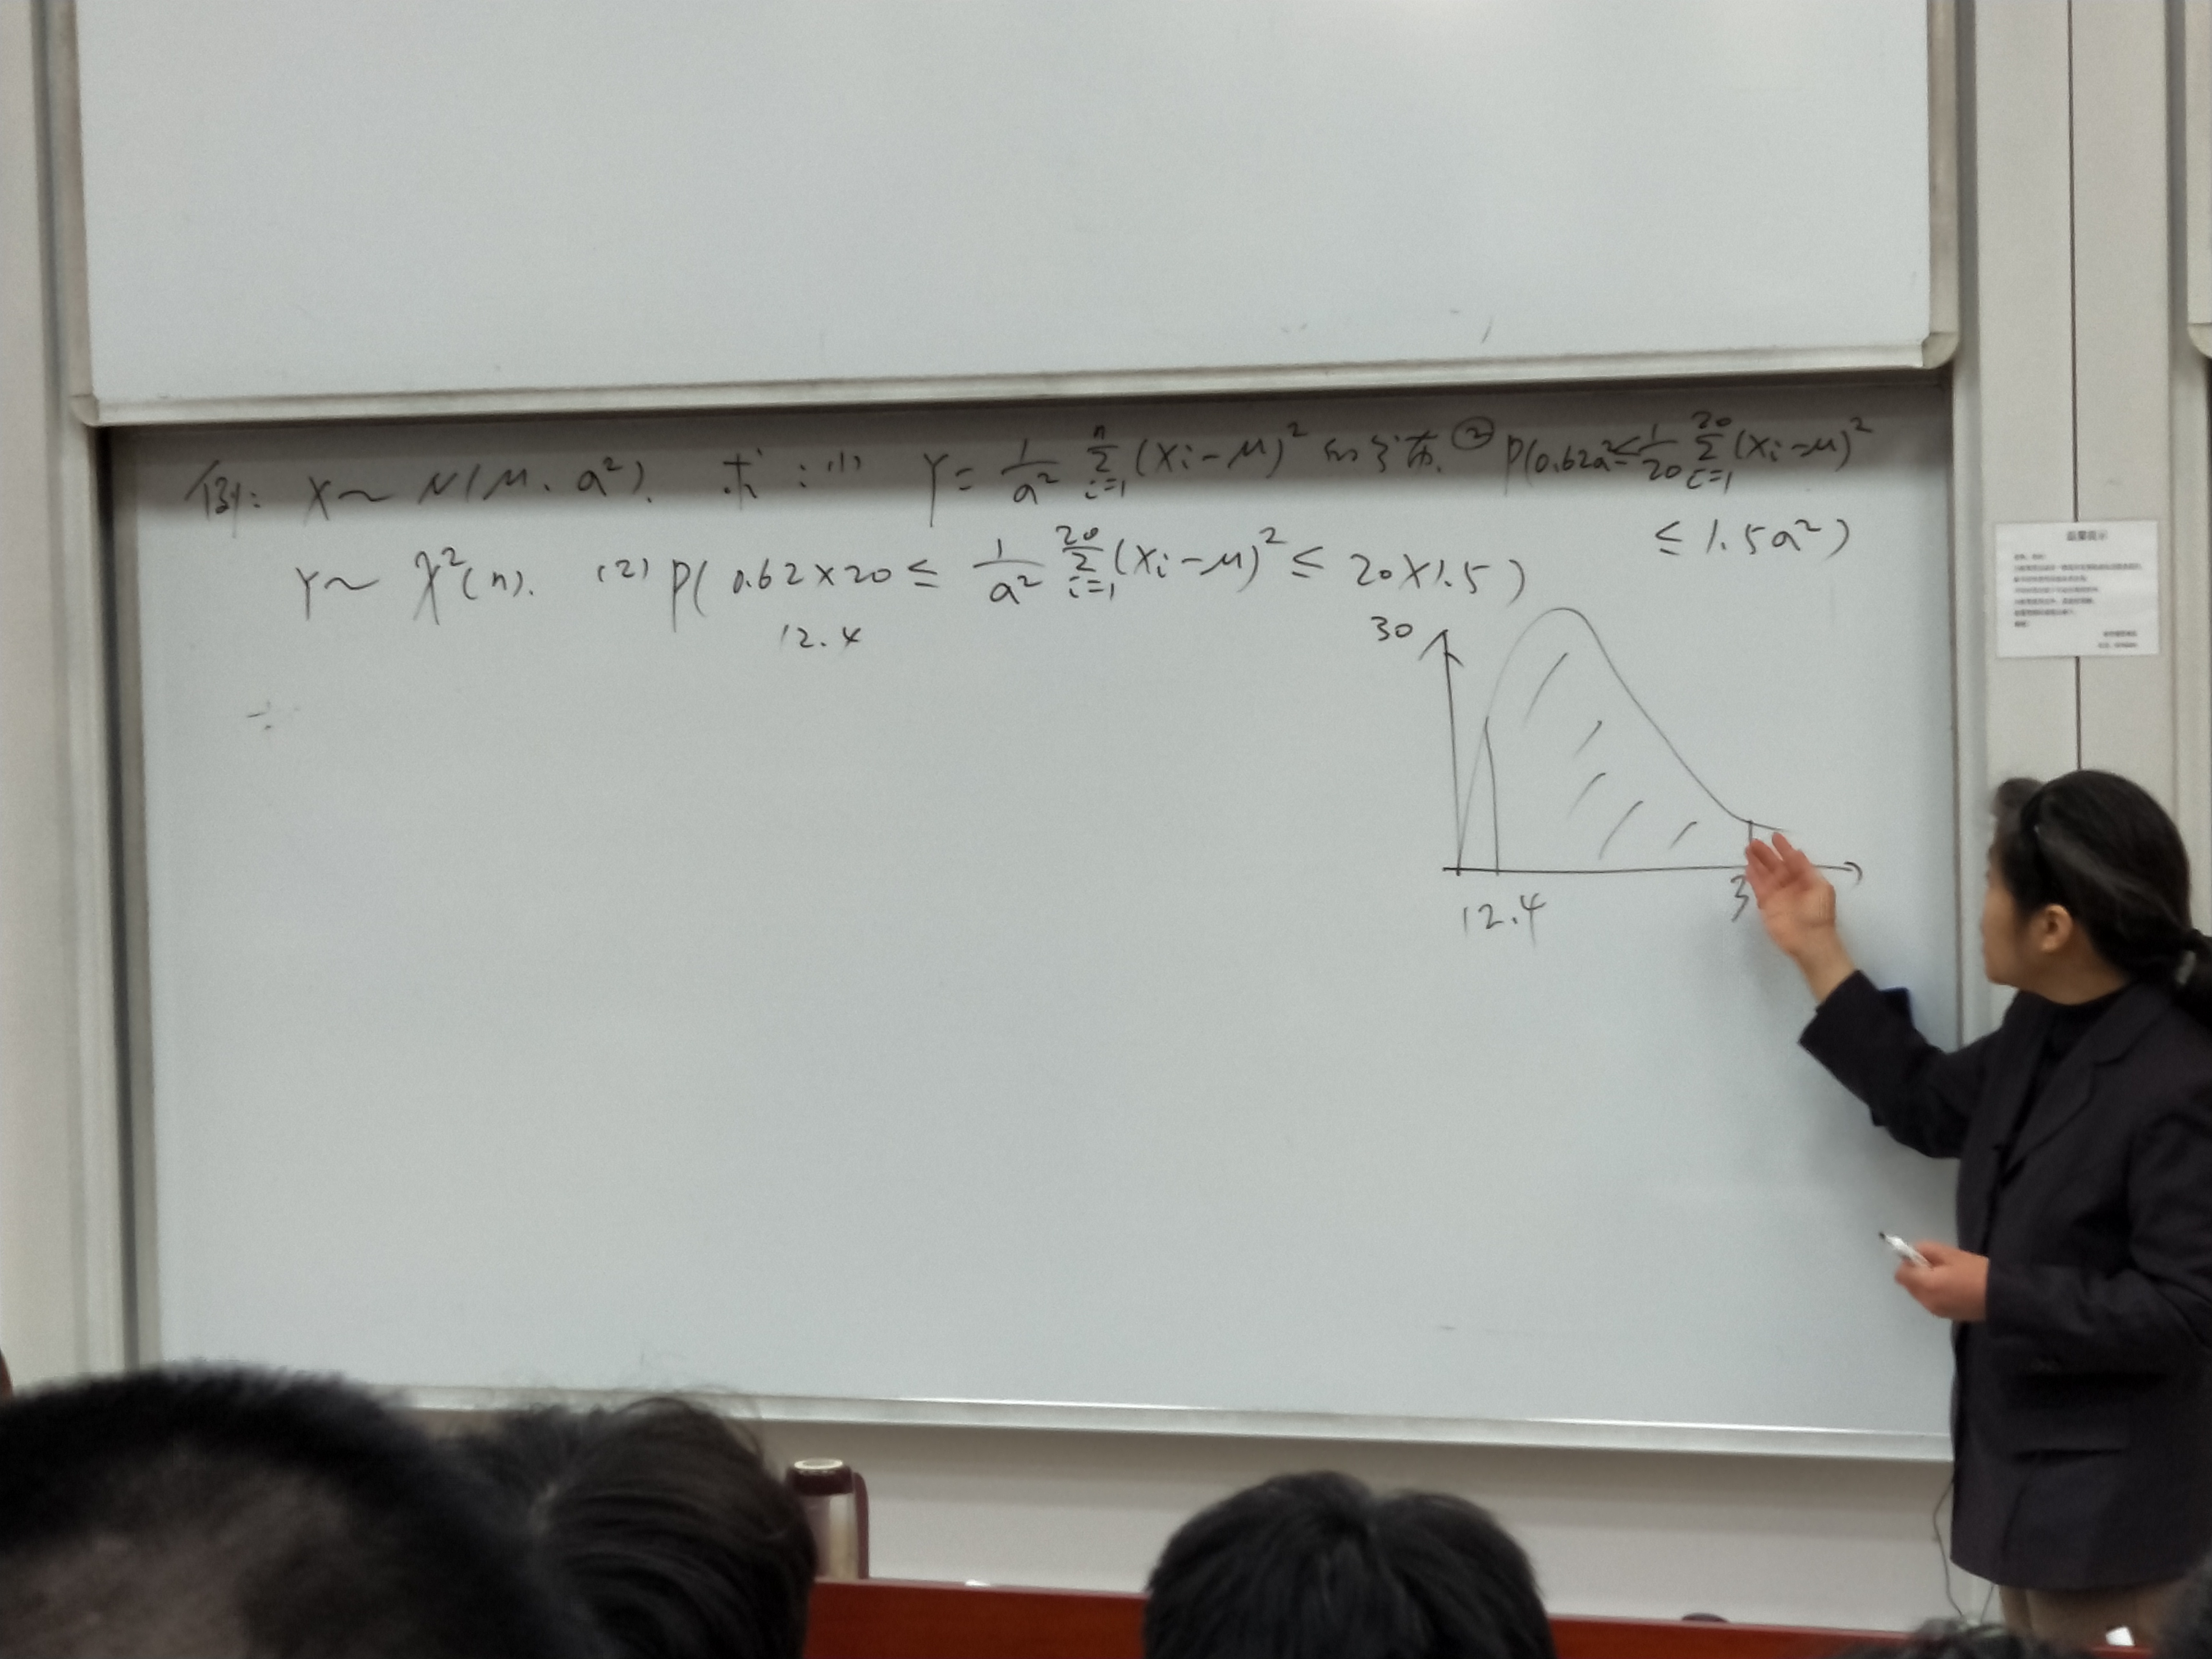 例: X ~ N(μ, a²). 求: (1) Y = 1/a² Σ_{i=1}^{n} (Xi-μ)² 的分布. ② P(0.62a² ≤ 1/20 Σ_{i=1}^{20} (Xi-μ)²
≤ 1.5a²)
Y ~ χ²(n). (2) P( 0.62×20 ≤ 1/a² Σ_{i=1}^{20} (Xi-μ)² ≤ 20×1.5 )
12.4
30
12.4 3